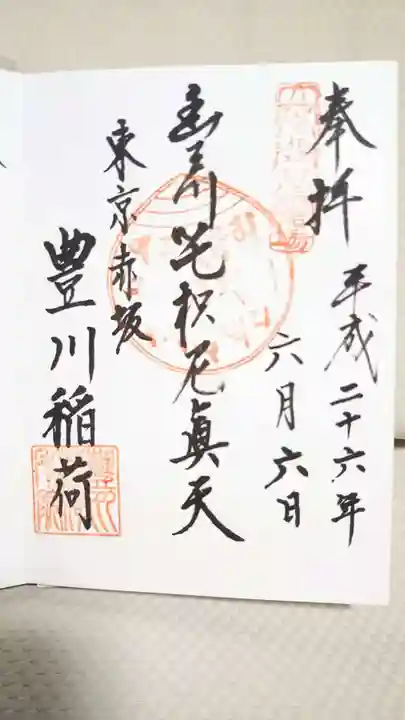 奉拝
平成二十六年
六月六日
豊川吒枳尼眞天
東京赤坂
豊川稲荷